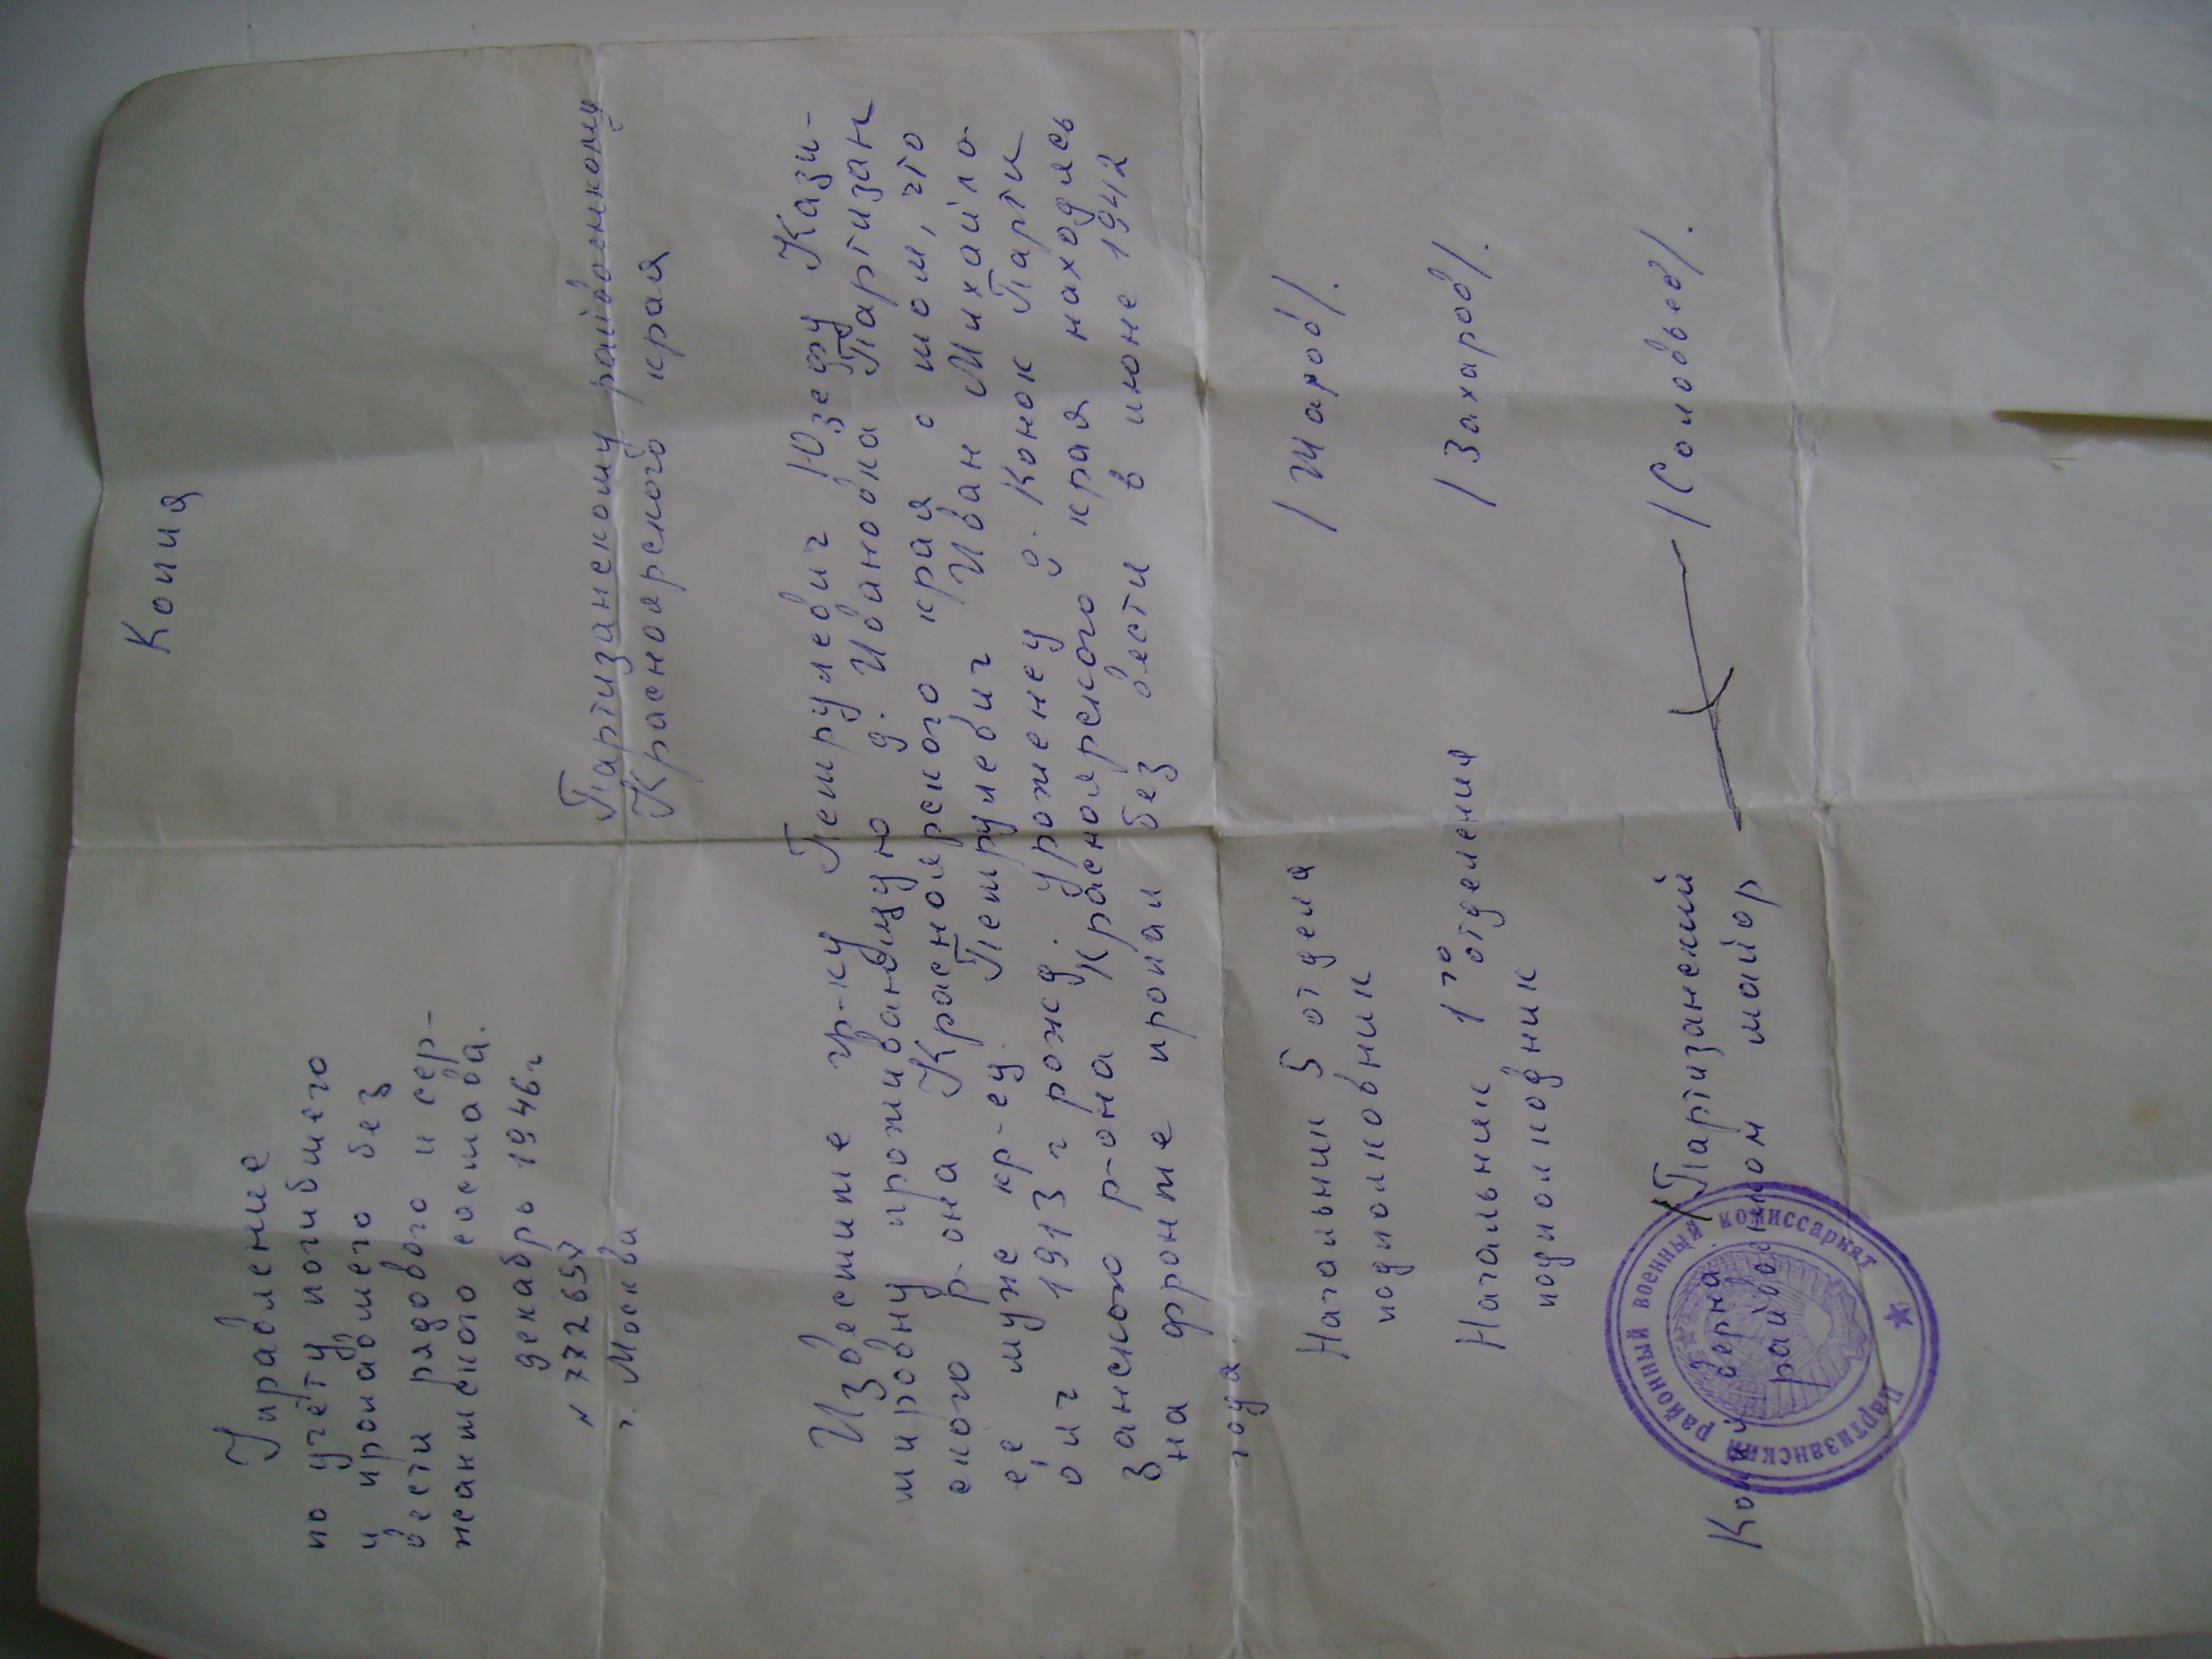 Копия
Управление
по учёту погибшего
и пропавшего без
вести рядового и сер-
жантского состава.
декабрь 1946 г
г. Москва
Партизанскому райвоенкому
Красноярского края
Известите гр-ку Петрулевич Юзефу Кази-
мировну проживающую д. Ивановка Партизан
ского р-она Красноярского края о том, что
её муже кр-ец Петрулевич Иван Михайло
вич 1913 г рожд. уроженец д. Конок Парти
занского р-она Красноярского края находясь
на фронте пропал без вести в июне 1942
года.
Начальник 5 отдела
подполковник / Шаров/.
Начальник 1го отделения
подполковник / Захаров/.
Копия верна / Партизанский
райвоенком майор /Соловьев/.
Партизанский районный военный комиссариат